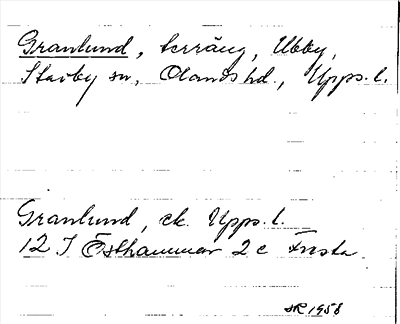 Granlund, terräng, Ubby,
Stavby sn, Olands hd., Upps. l.
Granlund, ek. Upps. l.
12 I Östhammar 2 c Frista
SR 1958